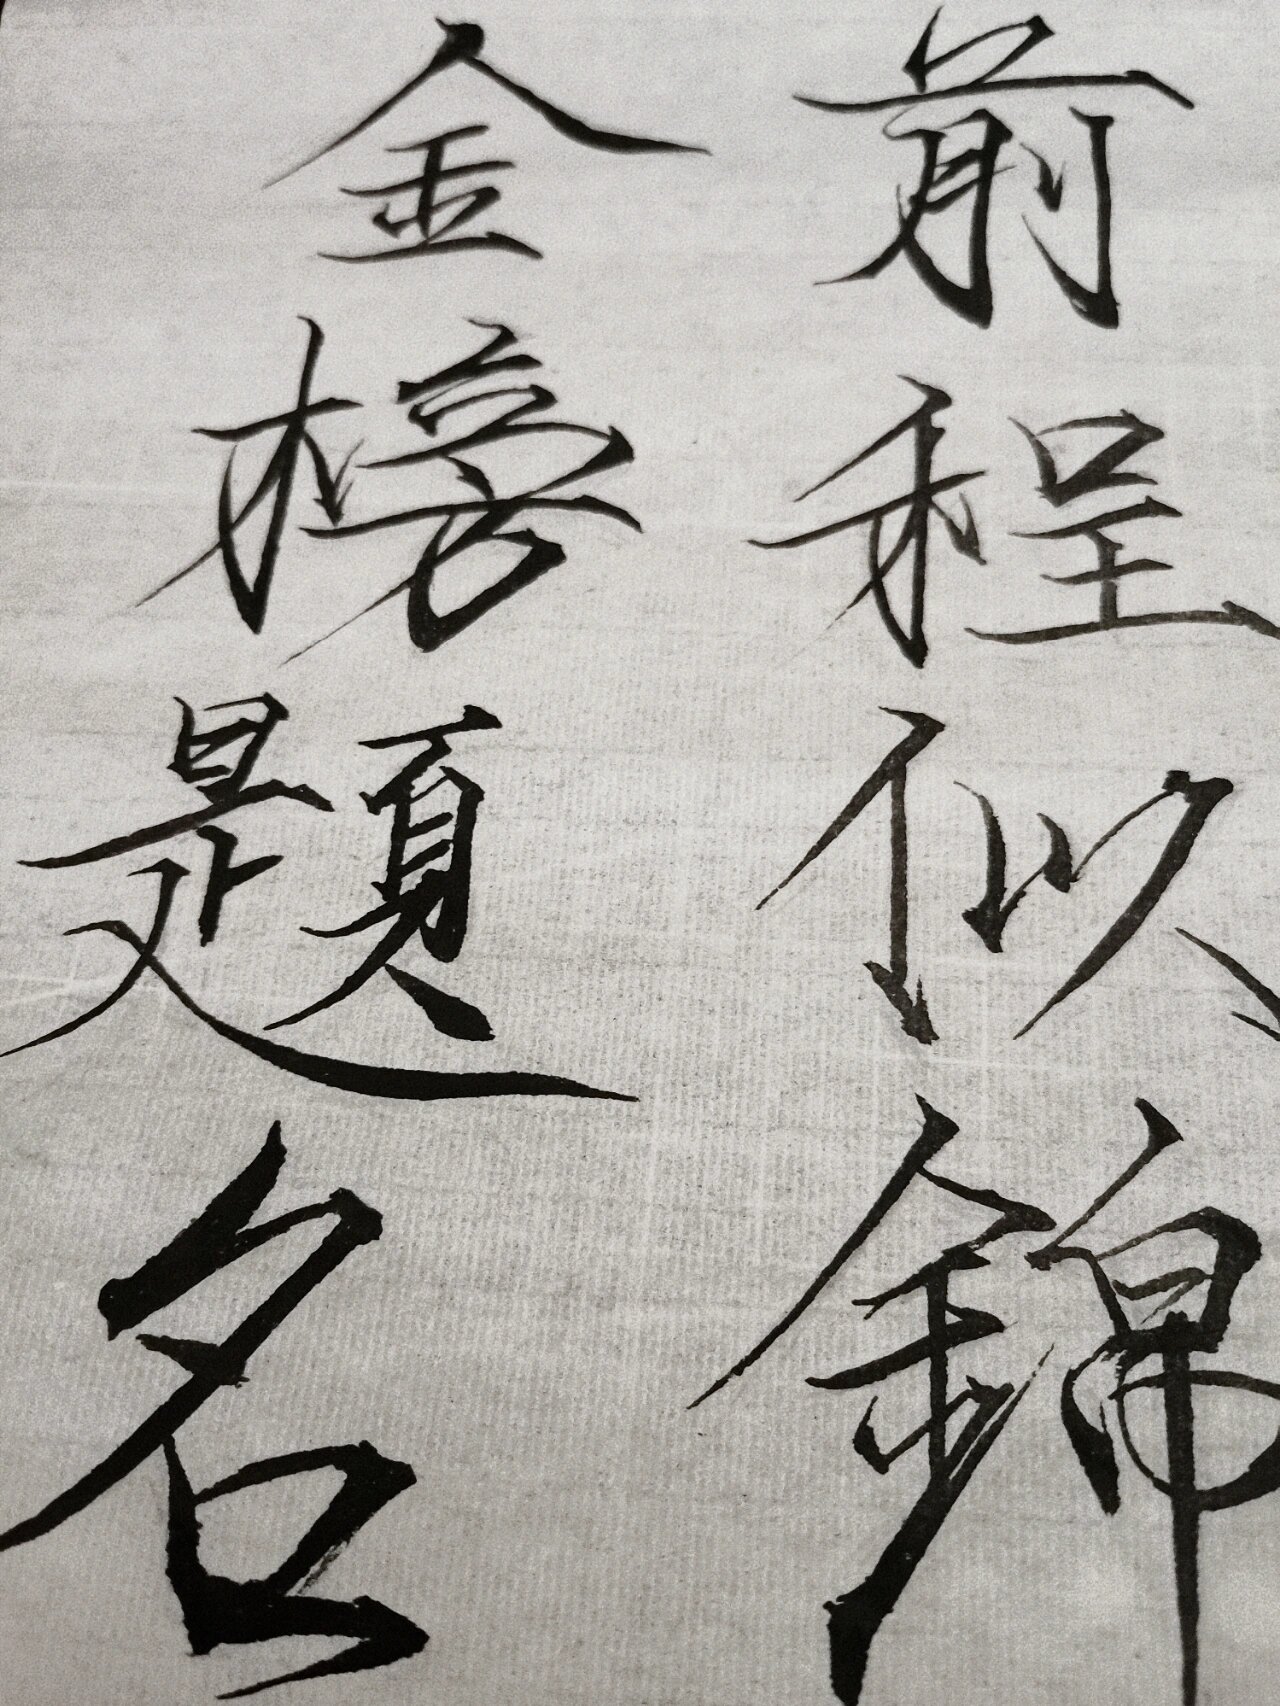 前程似錦
金榜題名